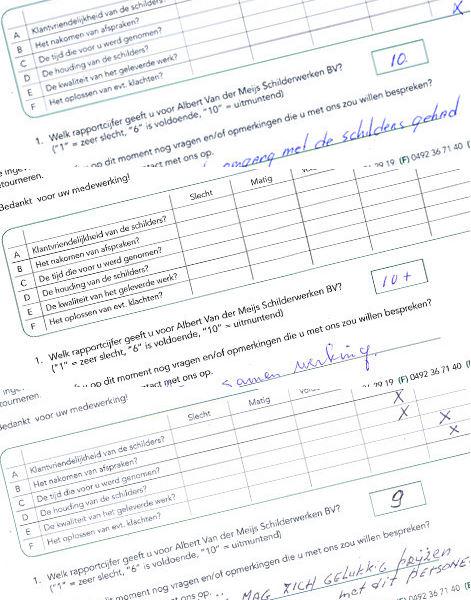 A Klantvriendelijkheid van de schilders?
B Het nakomen van afspraken?
C De tijd die voor u werd genomen?
D De houding van de schilders?
E De kwaliteit van het geleverde werk?
F Het oplossen van evt. klachten?
X
1. Welk rapportcijfer geeft u voor Albert Van der Meijs Schilderwerken BV?
("1" = zeer slecht, "6" is voldoende, "10" = uitmuntend)
10
op dit moment nog vragen en/of opmerkingen die u met ons zou willen bespreken?
met ons op.
omgang met de schilders gehad
tourneren.
29 19 (F) 0492 36 71 40
Bedankt voor uw medewerking!
Slecht Matig
A Klantvriendelijkheid van de schilders?
B Het nakomen van afspraken?
C De tijd die voor u werd genomen?
D De houding van de schilders?
E De kwaliteit van het geleverde werk?
F Het oplossen van evt. klachten?
1. Welk rapportcijfer geeft u voor Albert Van der Meijs Schilderwerken BV?
("1" = zeer slecht, "6" is voldoende, "10" = uitmuntend)
10+
op dit moment nog vragen en/of opmerkingen die u met ons zou willen bespreken?
met ons op.
samen werking.
tourneren.
29 19 (F) 0492 36 71 40
Bedankt voor uw medewerking!
Slecht Matig
A Klantvriendelijkheid van de schilders?
X
B Het nakomen van afspraken?
X
C De tijd die voor u werd genomen?
X
D De houding van de schilders?
X
E De kwaliteit van het geleverde werk?
F Het oplossen van evt. klachten?
1. Welk rapportcijfer geeft u voor Albert Van der Meijs Schilderwerken BV?
("1" = zeer slecht, "6" is voldoende, "10" = uitmuntend)
9
moment nog vragen en/of opmerkingen die u met ons zou willen bespreken?
ons op.
MAG ZICH GELUKKIG prijzen
met dit PERSONE
(F) 0492 36 71 40